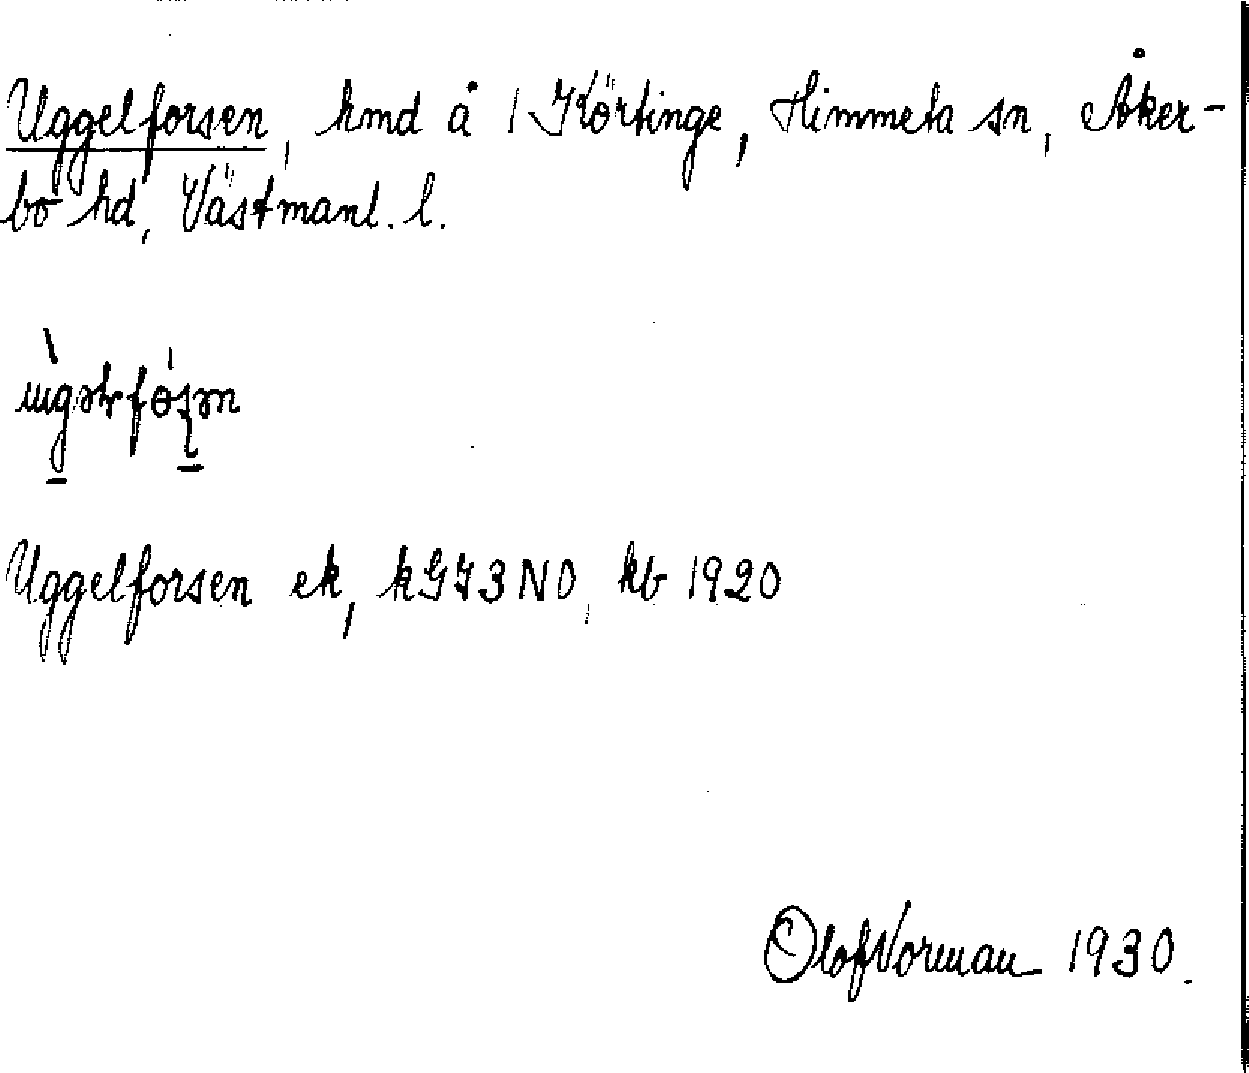 Uggelforsen, hmd å 1 Körtinge, Himmeta sn, Åker-
bo hd, Västmanl. l.
Uggelforsen ek, kGJ3NO, kb 1920
Olof Norman 1930.